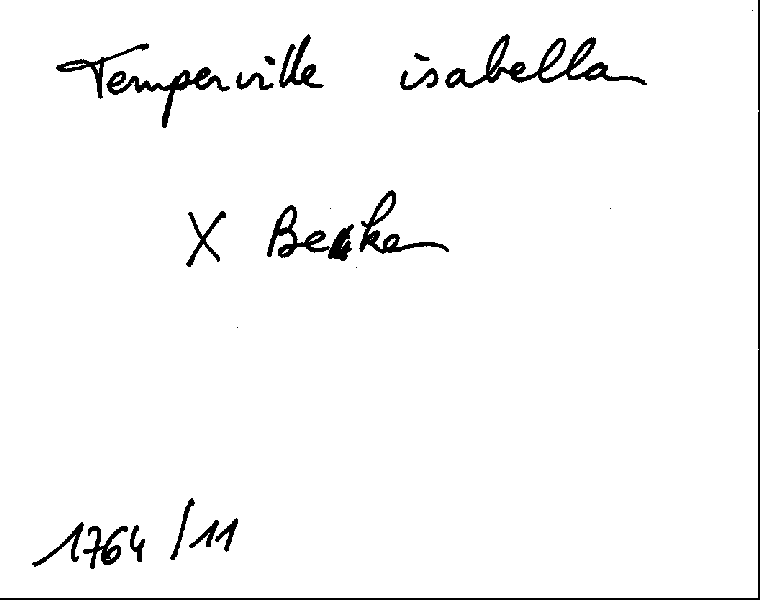 Temperville isabella
X Beske
1764/11